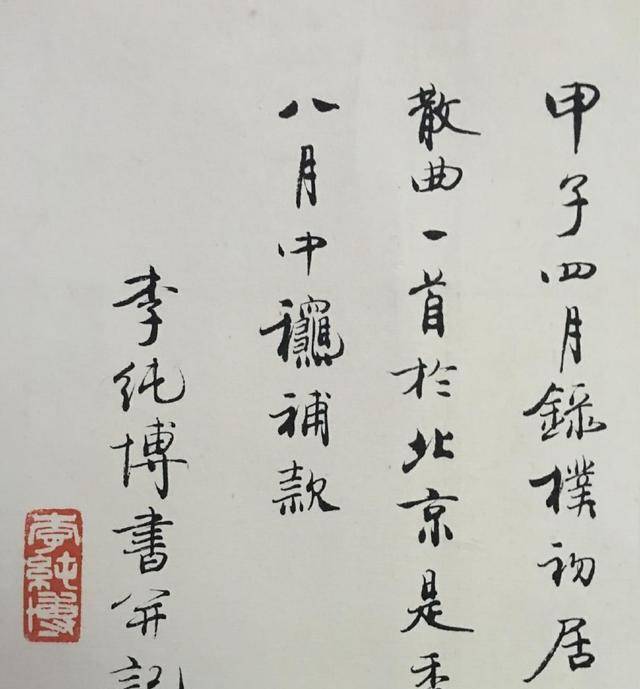 甲子四月錄樸初居
散曲一首於北京是
八月中龝補款
李純博書并記
李純博